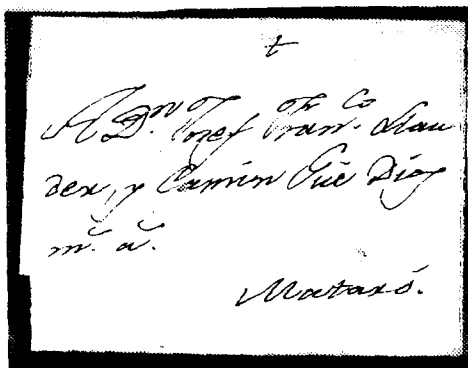 +
A Dn. Josef Franco. Llau
der, y Camin Gûe Dios
m.s a.s
Mataró.